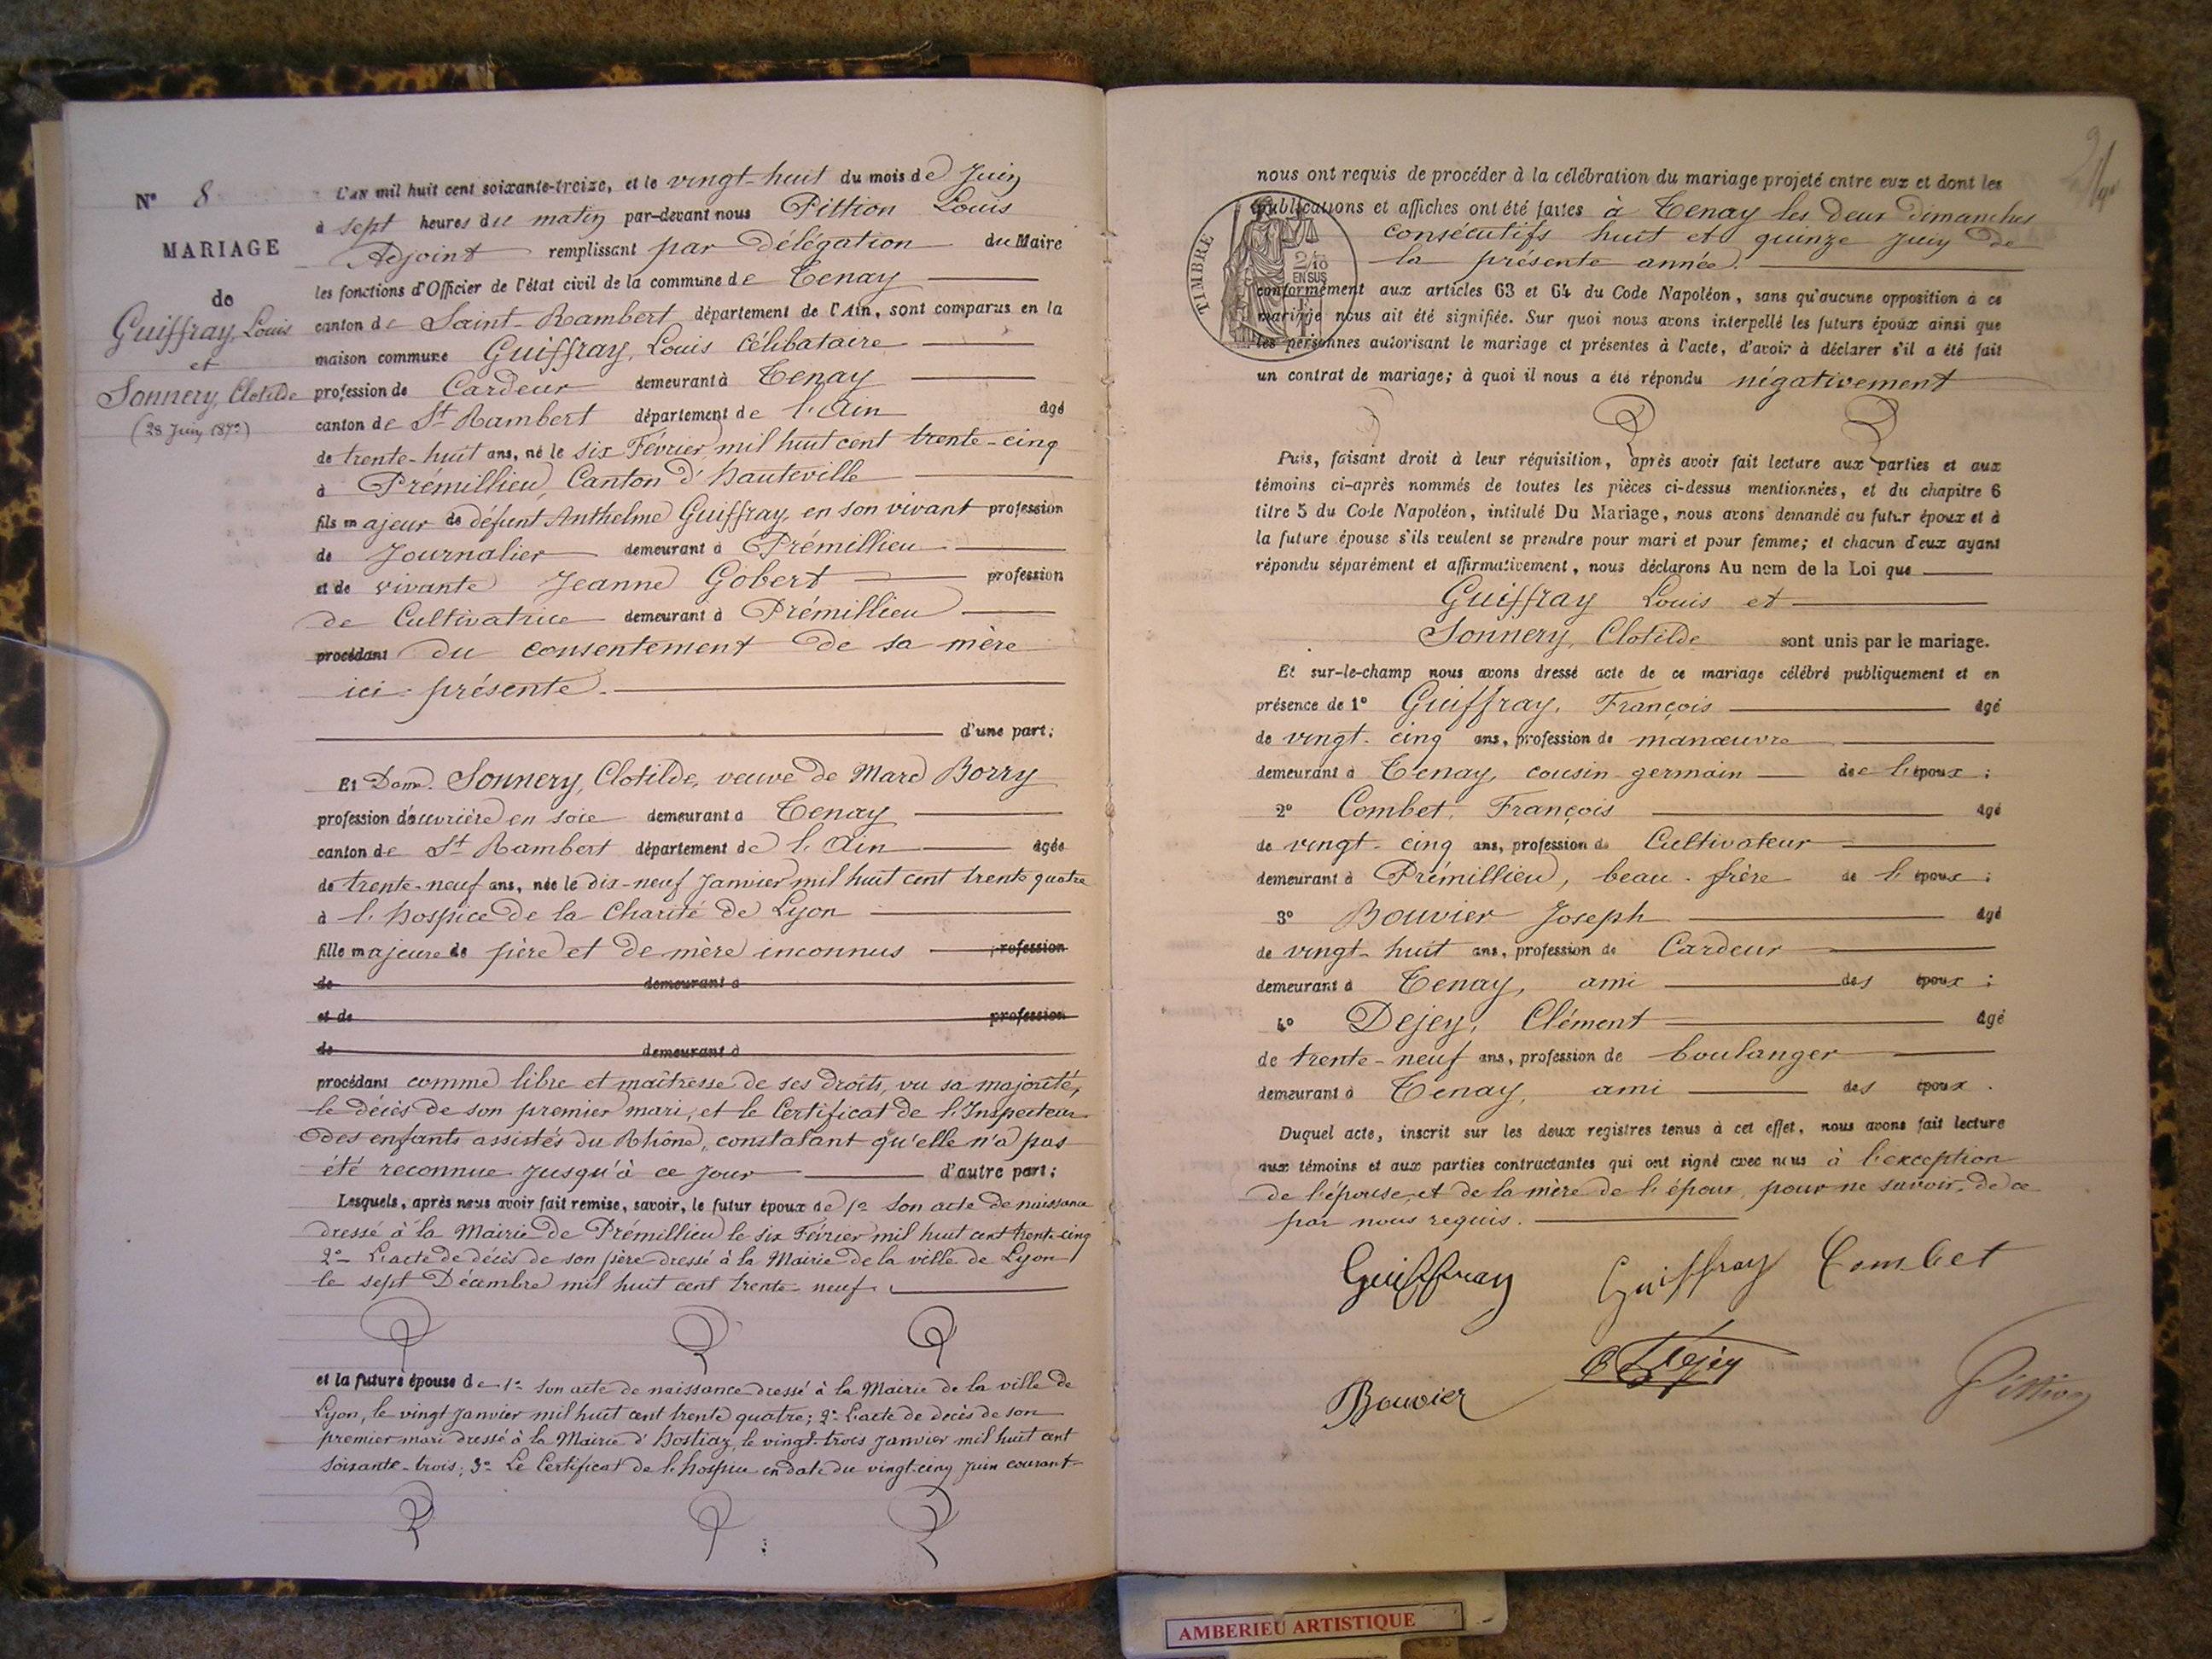 N° 8
MARIAGE
de
Guiffray, Louis
et
Sonnery, Clotilde
(28 Juin 1873)
L'AN mil huit cent soixante-treize, et le vingt-huit du mois de Juin
à sept heures du matin par-devant nous Pittion Louis
Adjoint remplissant par délégation du Maire
les fonctions d'Officier de l'état civil de la commune de Tenay
canton de Saint-Rambert département de l'Ain, sont comparus en la
maison commune Guiffray, Louis Célibataire
profession de Cardeur demeurant à Tenay
canton de St Rambert département de l'Ain âgé
de trente-huit ans, né le six Février mil huit cent trente-cinq
à Prémillieu, Canton d'hauteville
fils majeur de défunt Anthelme Guiffray, en son vivant profession
de Journalier demeurant à Prémillieu
et de vivante Jeanne Gobert profession
de Cultivatrice demeurant à Prémillieu
procédant du consentement de sa mère
ici présente.
d'une part;
Et Dame Sonnery, Clotilde, veuve de Marc Borry
profession d'ouvrière en soie demeurant à Tenay
canton de St Rambert département de l'Ain âgée
de trente-neuf ans, née le dix-neuf Janvier mil huit cent trente quatre
à l'hospice de la Charité de Lyon
fille majeure de père et de mère inconnus profession
de demeurant à
et de profession
de demeurant à
procédant comme libre et maîtresse de ses droits, vu sa majorité,
le décès de son premier mari, et le Certificat de l'Inspecteur
des enfants assistés du Rhône, constatant qu'elle n'a pas
été reconnue jusqu'à ce jour d'autre part;
Lesquels, après nous avoir fait remise, savoir, le futur époux de 1° son acte de naissance
dressé à la Mairie de Prémillieu le six Février mil huit cent trente-cinq
2° L'acte de décès de son père dressé à la Mairie de la ville de Lyon
le sept Décembre mil huit cent trente-neuf.
et la future épouse de 1° son acte de naissance dressé à la Mairie de la ville de
Lyon, le vingt Janvier mil huit cent trente quatre; 2° L'acte de décès de son
premier mari dressé à la Mairie d'hostiaz, le vingt-trois Janvier mil huit cent
soixante-trois; 3° Le Certificat de l'hospice en date du vingt-cinq juin courant
nous ont requis de procéder à la célébration du mariage projeté entre eux et dont les
publications et affiches ont été faites à Tenay les deux dimanches
consécutifs huit et quinze juin de
la présente année.
TIMBRE
2/10
EN SUS
conformément aux articles 63 et 64 du Code Napoléon, sans qu'aucune opposition à ce
mariage nous ait été signifiée. Sur quoi nous avons interpellé les futurs époux ainsi que
les personnes autorisant le mariage et présentes à l'acte, d'avoir à déclarer s'il a été fait
un contrat de mariage; à quoi il nous a été répondu négativement
Puis, faisant droit à leur réquisition, après avoir fait lecture aux parties et aux
témoins ci-après nommés de toutes les pièces ci-dessus mentionnées, et du chapitre 6
titre 5 du Code Napoléon, intitulé Du Mariage, nous avons demandé au futur époux et à
la future épouse s'ils veulent se prendre pour mari et pour femme; et chacun d'eux ayant
répondu séparément et affirmativement, nous déclarons Au nom de la Loi que
Guiffray Louis et
Sonnery, Clotilde sont unis par le mariage.
Et sur-le-champ nous avons dressé acte de ce mariage célébré publiquement et en
présence de 1° Guiffray, François âgé
de vingt-cinq ans, profession de manœuvre
demeurant à Tenay, cousin germain de l'époux;
2° Combet, François âgé
de vingt-cinq ans, profession de Cultivateur
demeurant à Prémillieu, beau-frère de l'époux;
3° Bouvier Joseph âgé
de vingt-huit ans, profession de Cardeur
demeurant à Tenay, ami des époux;
4° Dejey, Clément âgé
de trente-neuf ans, profession de boulanger
demeurant à Tenay, ami des époux.
Duquel acte, inscrit sur les deux registres tenus à cet effet, nous avons fait lecture
aux témoins et aux parties contractantes qui ont signé avec nous à l'exception
de l'épouse, et de la mère de l'époux, pour ne savoir, de ce
par nous requis.
Guiffray Guiffray Combet
C Dejey
Bouvier Pittion
AMBERIEU ARTISTIQUE